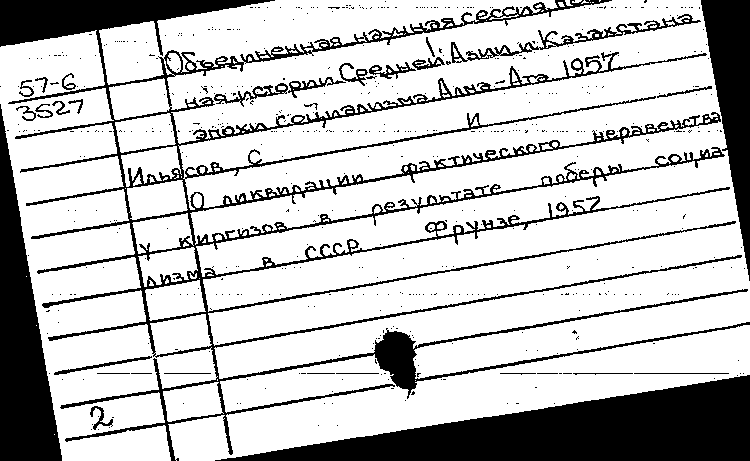 Объединенная научная сессия,
57-6
3527
ная истории Средней Азии и Казахстана
эпохи социализма. Алма-Ата 1957
Ильясов, С И
О ликвидации фактического неравенства
у киргизов в результате победы социа-
лизма в СССР Фрунзе, 1957
2